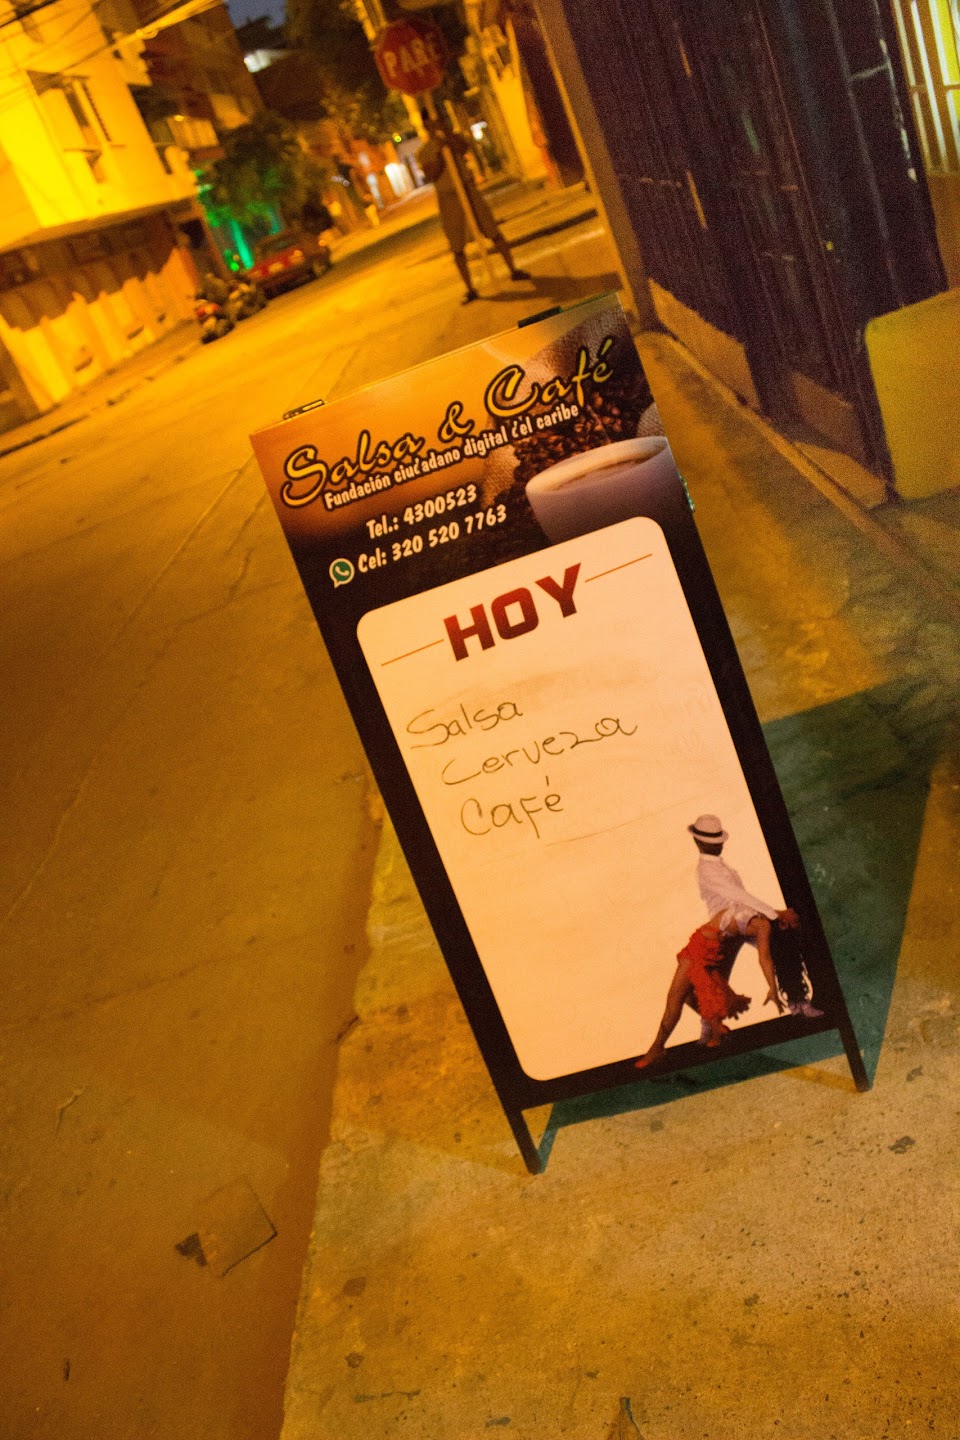 PARE
Salsa & Café
Fundación ciudadano digital del caribe
Tel.: 4300523
Cel: 320 520 7763
HOY
Salsa
Cerveza
Café